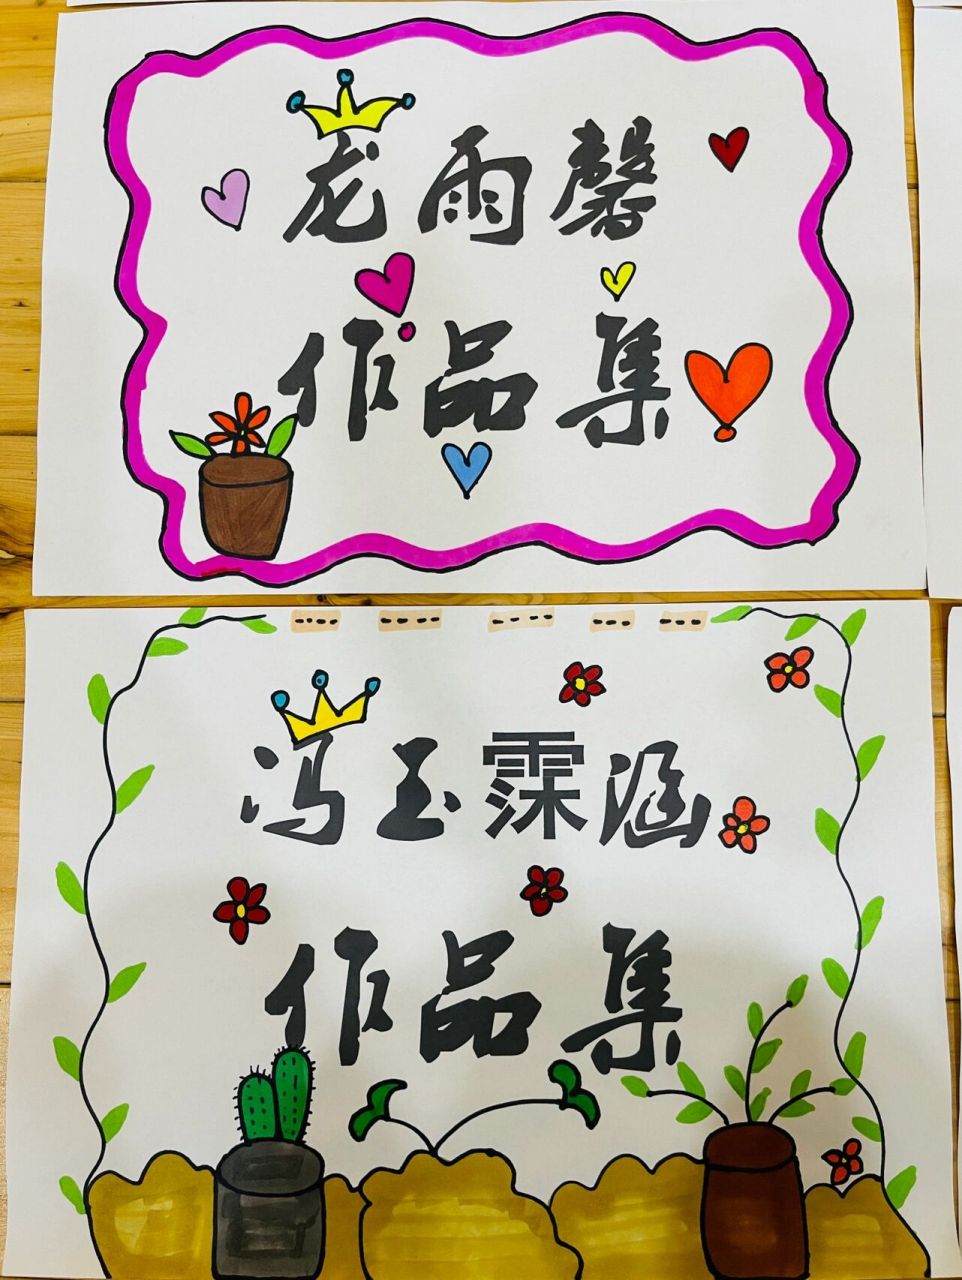 龙雨馨
作品集
冯玉霂涵
作品集